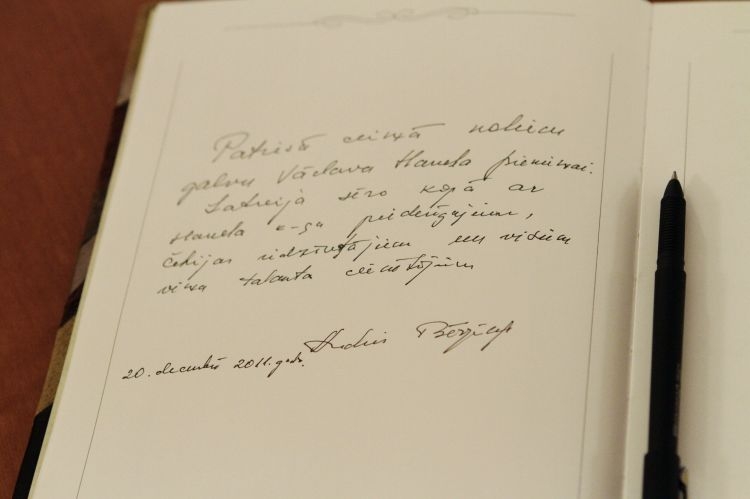 Patiesā cieņā noliecu
galvu Václava Havela piemiņai.
Latvija sēro kopā ar
Havela k-ga piederīgajiem,
Čehijas iedzīvotājiem un visiem
viņa talanta cienītājiem
Andris Bērziņš
20. decembrī 2011. gadā.